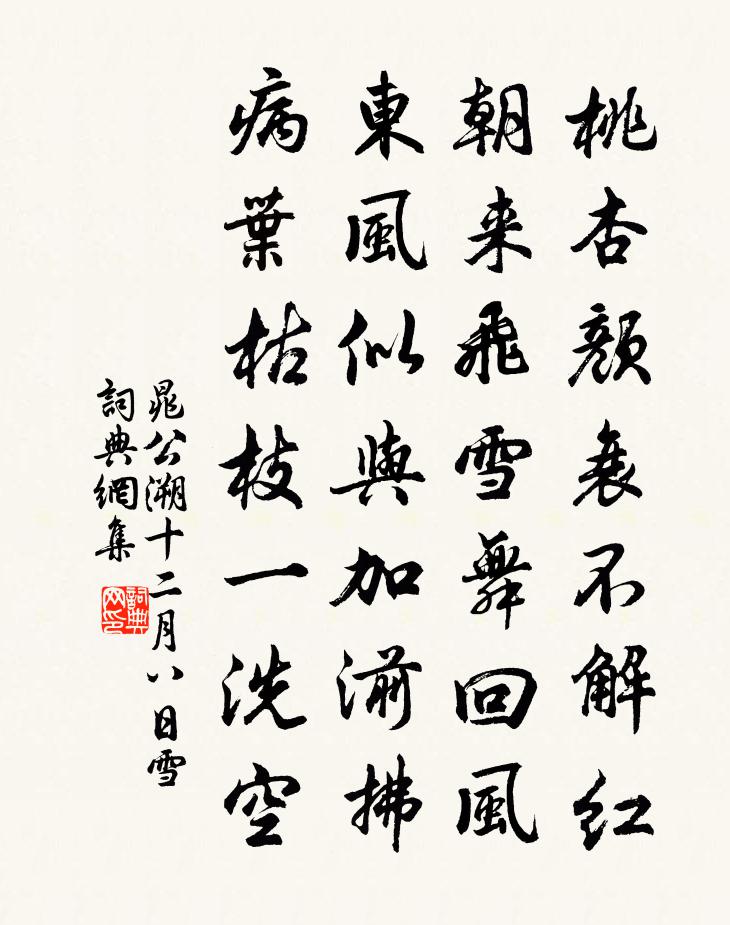 桃杏顏衰不解紅
朝来飛雪舞回風
東風似與加湔拂
病葉枯枝一洗空
晁公溯十二月八日雪
詞典網集
詞典网印